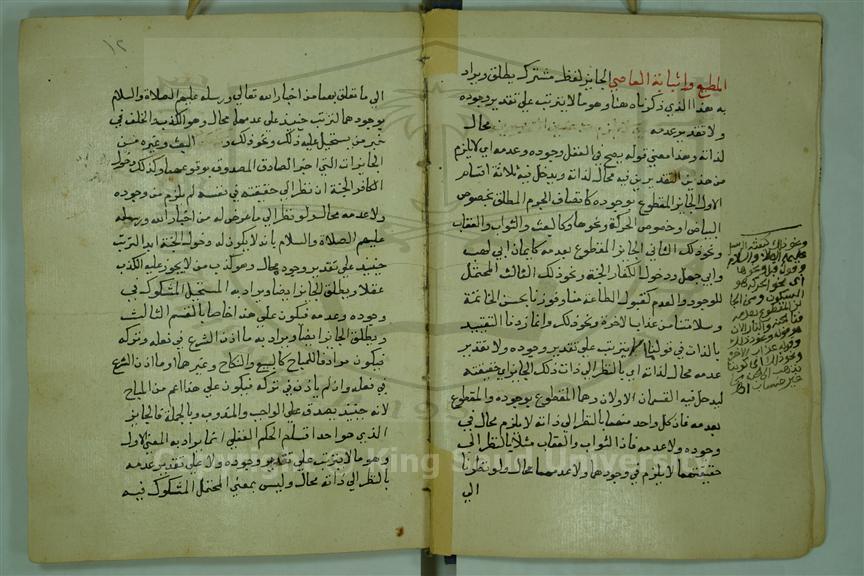 المطيع واثابة العاصي الجايز لفظ مشترك يطلق ويراد
به هذا الذي ذكرناه هنا وهو ما لا يترتب على تقدير وجوده
ولا تقدير عدمه محال
لذاته وهذا معنى قوله يصح في العقل وجوده وعدمه اي لا يلزم
من هذين التقديرين فيه محال لذاته ويدخل فيه ثلاثة اقسام
الاول الجايز المقطوع بوجوده كاتصاف الجرم المطلق بخصوص
البياض او خصوص الحركة ونحوها وكالبعث والثواب والعقاب
ونحو ذلك الثاني الجايز المقطوع بعدمه كايمان ابي لهب
وابي جهل ودخول الكفار الجنة ونحو ذلك الثالث المحتمل
للوجود والعدم كقبول الطاعة منا وفوزنا بحسن الخاتمة
وسلامتنا من عذاب الاخرة ونحو ذلك وانما زدنا التقييد
بالذات في قولنا لا يترتب على تقدير وجوده ولا تقدير
عدمه محال لذاته اي بالنظر الى ذات ذلك الجايز اي حقيقته
ليدخل فيه القسمان الاولان وهما المقطوع بوجوده والمقطوع
بعدمه فان كل واحد منهما بالنظر الى ذاته لا يلزم محال في
وجوده ولا عدمه فاذا الثواب والعقاب مثلا بالنظر الى
حقيقتهما لا يلزم في وجودهما ولا عدمهما محال ولو نظرنا
الي
ونحو ذلك كبعثة الرسل
عليهم الصلاة والسلام
وقوله ونحوها
اي نحو الحركة وهو
السكون
١٢
الى ما تعلق بهما من اخبار الله تعالى ورسله عليهم الصلاة والسلام
بوجودهما لترتب حينئذ على عدمهما محال وهو الكذب والخلف في
خبر من يستحيل عليه ذلك ونحو ذلك البعث وغيره من
الجايزات التي اخبر الصادق المصدوق بوقوعها وكذلك دخول
الكافر الجنة ان نظر الى حقيقته في نفسه لم يلزم من وجوده
ولا عدمه محال ولو نظر الى ما عرض له من اخبار الله ورسله
عليهم الصلاة والسلام بانه لا يكون له دخول الجنة ابدا لترتب
حينئذ على تقدير وجوده محال وهو كذب من لا يجوز عليه الكذب
عقلا ويطلق الجايز ايضا ويراد به المحتمل المشكوك في
وجوده وعدمه فيكون على هذا خاصا بالقسم الثالث
ويطلق الجايز ايضا ويراد به ما اذن الشرع في فعله وتركه
فيكون مرادفا للمباح كالبيع والنكاح وغيرهما او ما اذن الشرع
في فعله وان لم ياذن في تركه فيكون على هذا اعم من المباح
لانه حينئذ يصدق على الواجب والمندوب وبالجملة فالجايز
الذي هو احد اقسام الحكم العقلي انما يراد به المعنى الاول
وهو ما لا يترتب على تقدير وجوده ولا على تقدير عدمه
بالنظر الى ذاته محال وليس بمعنى المحتمل المشكوك فيه
Copyright © King Saud University